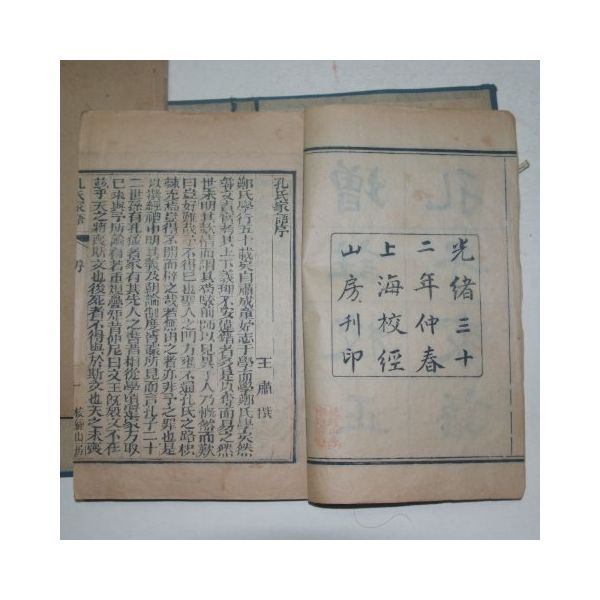 光緒三十
二年仲春
上海校經
山房刊印
孔氏家語序
王肅撰
鄭氏學行五十載矣自肅成童始志于學而學鄭氏學矣然
世未明其款情而謂其苟駁前師以見異于人乃慨然而歎
曰豈好難哉予不得已也聖人之門方壅不通孔氏之路枳
棘充焉豈得不開而辟之哉若無由之者亦非予之罪也是
以撰經禮申明其義及朝論制度皆據所見而言孔子二十
二世孫有孔猛者家有其先人之書昔相從學頃還家方取
已來與予所論有若重規疊矩昔仲尼曰文王既歿文不在
茲乎天之將喪斯文也後死者不得與於斯文也天之未喪
孔氏家語
序
一
校經山房